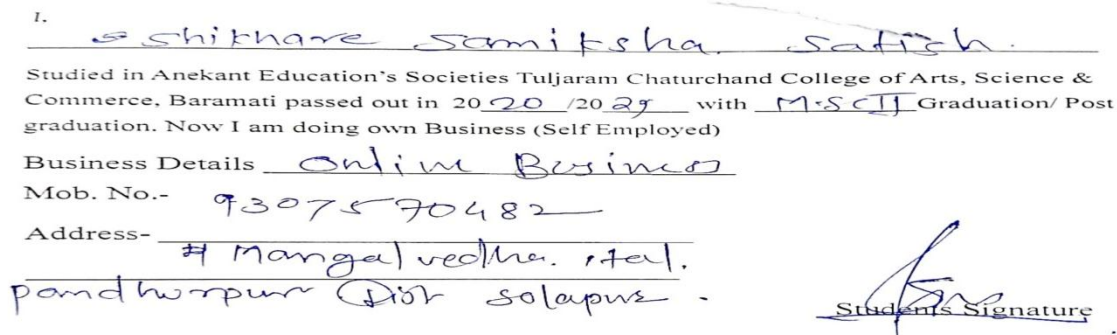 1.
Shikhare Samiksha Satish.
Studied in Anekant Education's Societies Tuljaram Chaturchand College of Arts, Science &
Commerce, Baramati passed out in 2020 /20 with M.Sc II Graduation/ Post
graduation. Now I am doing own Business (Self Employed)
Business Details Online Business
Mob. No.- 9307570482
Address-
Mangalvedha. tal.
pandharpur Dist solapur.
Students Signature